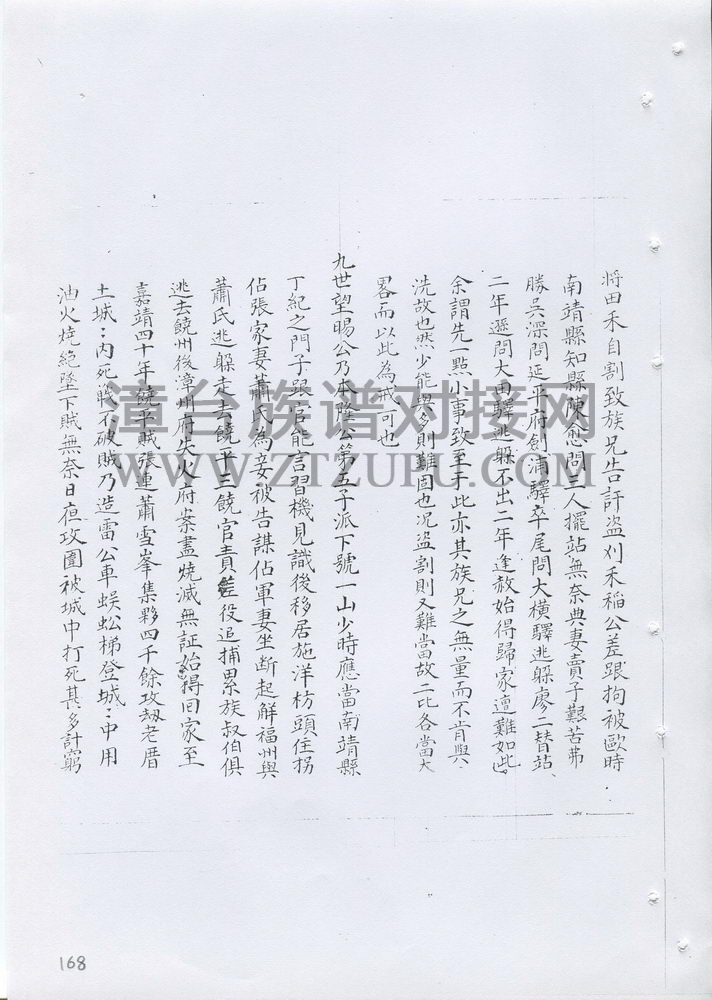 将田禾自割致族兄告訐盗刈禾稲公差跟拘被歐時
南靖縣知縣陳愈問三人擺站無奈典妻賣子艱苦弗
勝吳深問延平府劍浦驛卒尾問大橫驛逃躲廖二替站
二年遜問大田驛逃躲不出二年逢赦始得歸家遭難如此
余謂先一點小事致至于此亦其族兄之無量而不肯與
洗故也然少能與多則難固也况盗割則又難當故二比各當大
畧而以此為戒可也
九世望賜公乃本隆公第五子派下號一山少時應當南靖縣
丁紀之門子跟官能言習機見識後移居施洋枋頭住拐
佔張家妻蕭氏為妾被告謀佔軍妻坐断起解福州與
蕭氏逃躲走去饒平三饒官責差役追捕累族叔伯俱
逃去饒州後漳州府失火府案盡燒滅無証始得回家至
嘉靖四十年饒平賊張連蕭雪峯集夥四千餘攻刼老厝
土城:内死戰不破賊乃造雷公車蜈蚣梯登城:中用
油火燒絶墜下賊無奈日夜攻圍被城中打死甚多計窮
漳台族谱对接网
WWW.ZTZUPU.COM
168